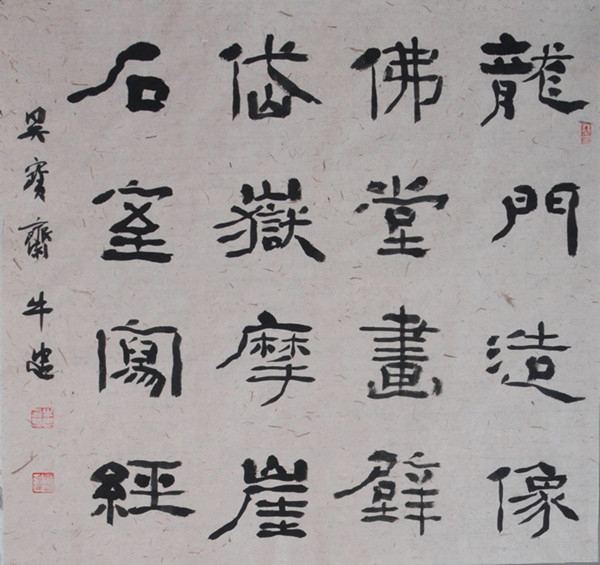 龍門造像
佛堂畫壁
岱嶽摩崖
石室寫經
昊寶齋牛忠